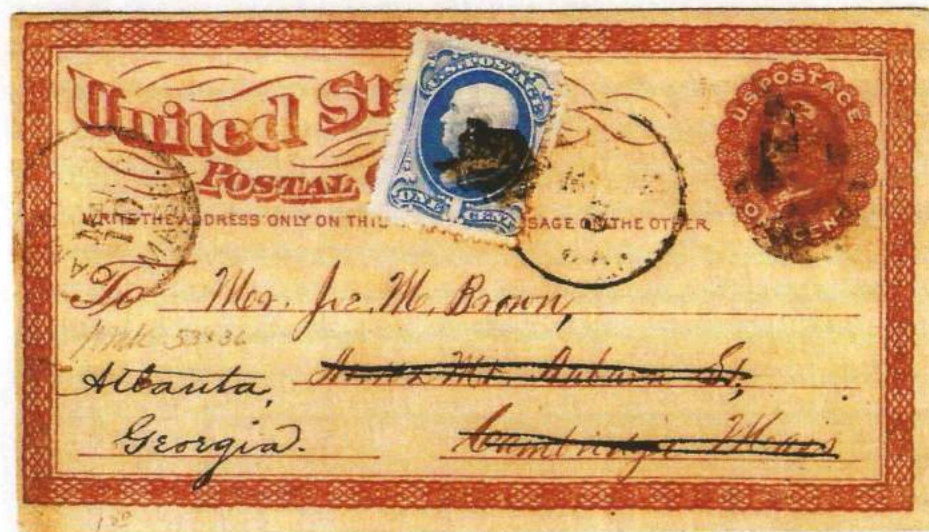 United
POSTAL
U.S. POSTAGE
ONE CENT
U.S. POSTAGE
ONE CENT
WRITE THE ADDRESS ONLY ON THIS SAGE ON THE OTHER
To Mr. Joe. M. Brown,
53 x 36
Mt. Auburn St,
Atlanta,
Cambridge Mass
Georgia.